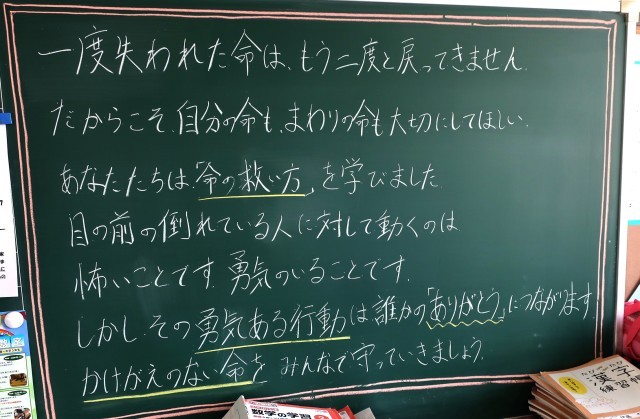 一度失われた命は、もう二度と戻ってきません
だからこそ、自分の命も、まわりの命も大切にしてほしい。
あなたたちは、「命の救い方」を学びました
目の前の倒れている人に対して動くのは
怖いことです。勇気のいることです。
しかし、その勇気ある行動は誰かの「ありがとう」につながります
かけがえのない命をみんなで守っていきましょう。
数学の学習
漢字
練習